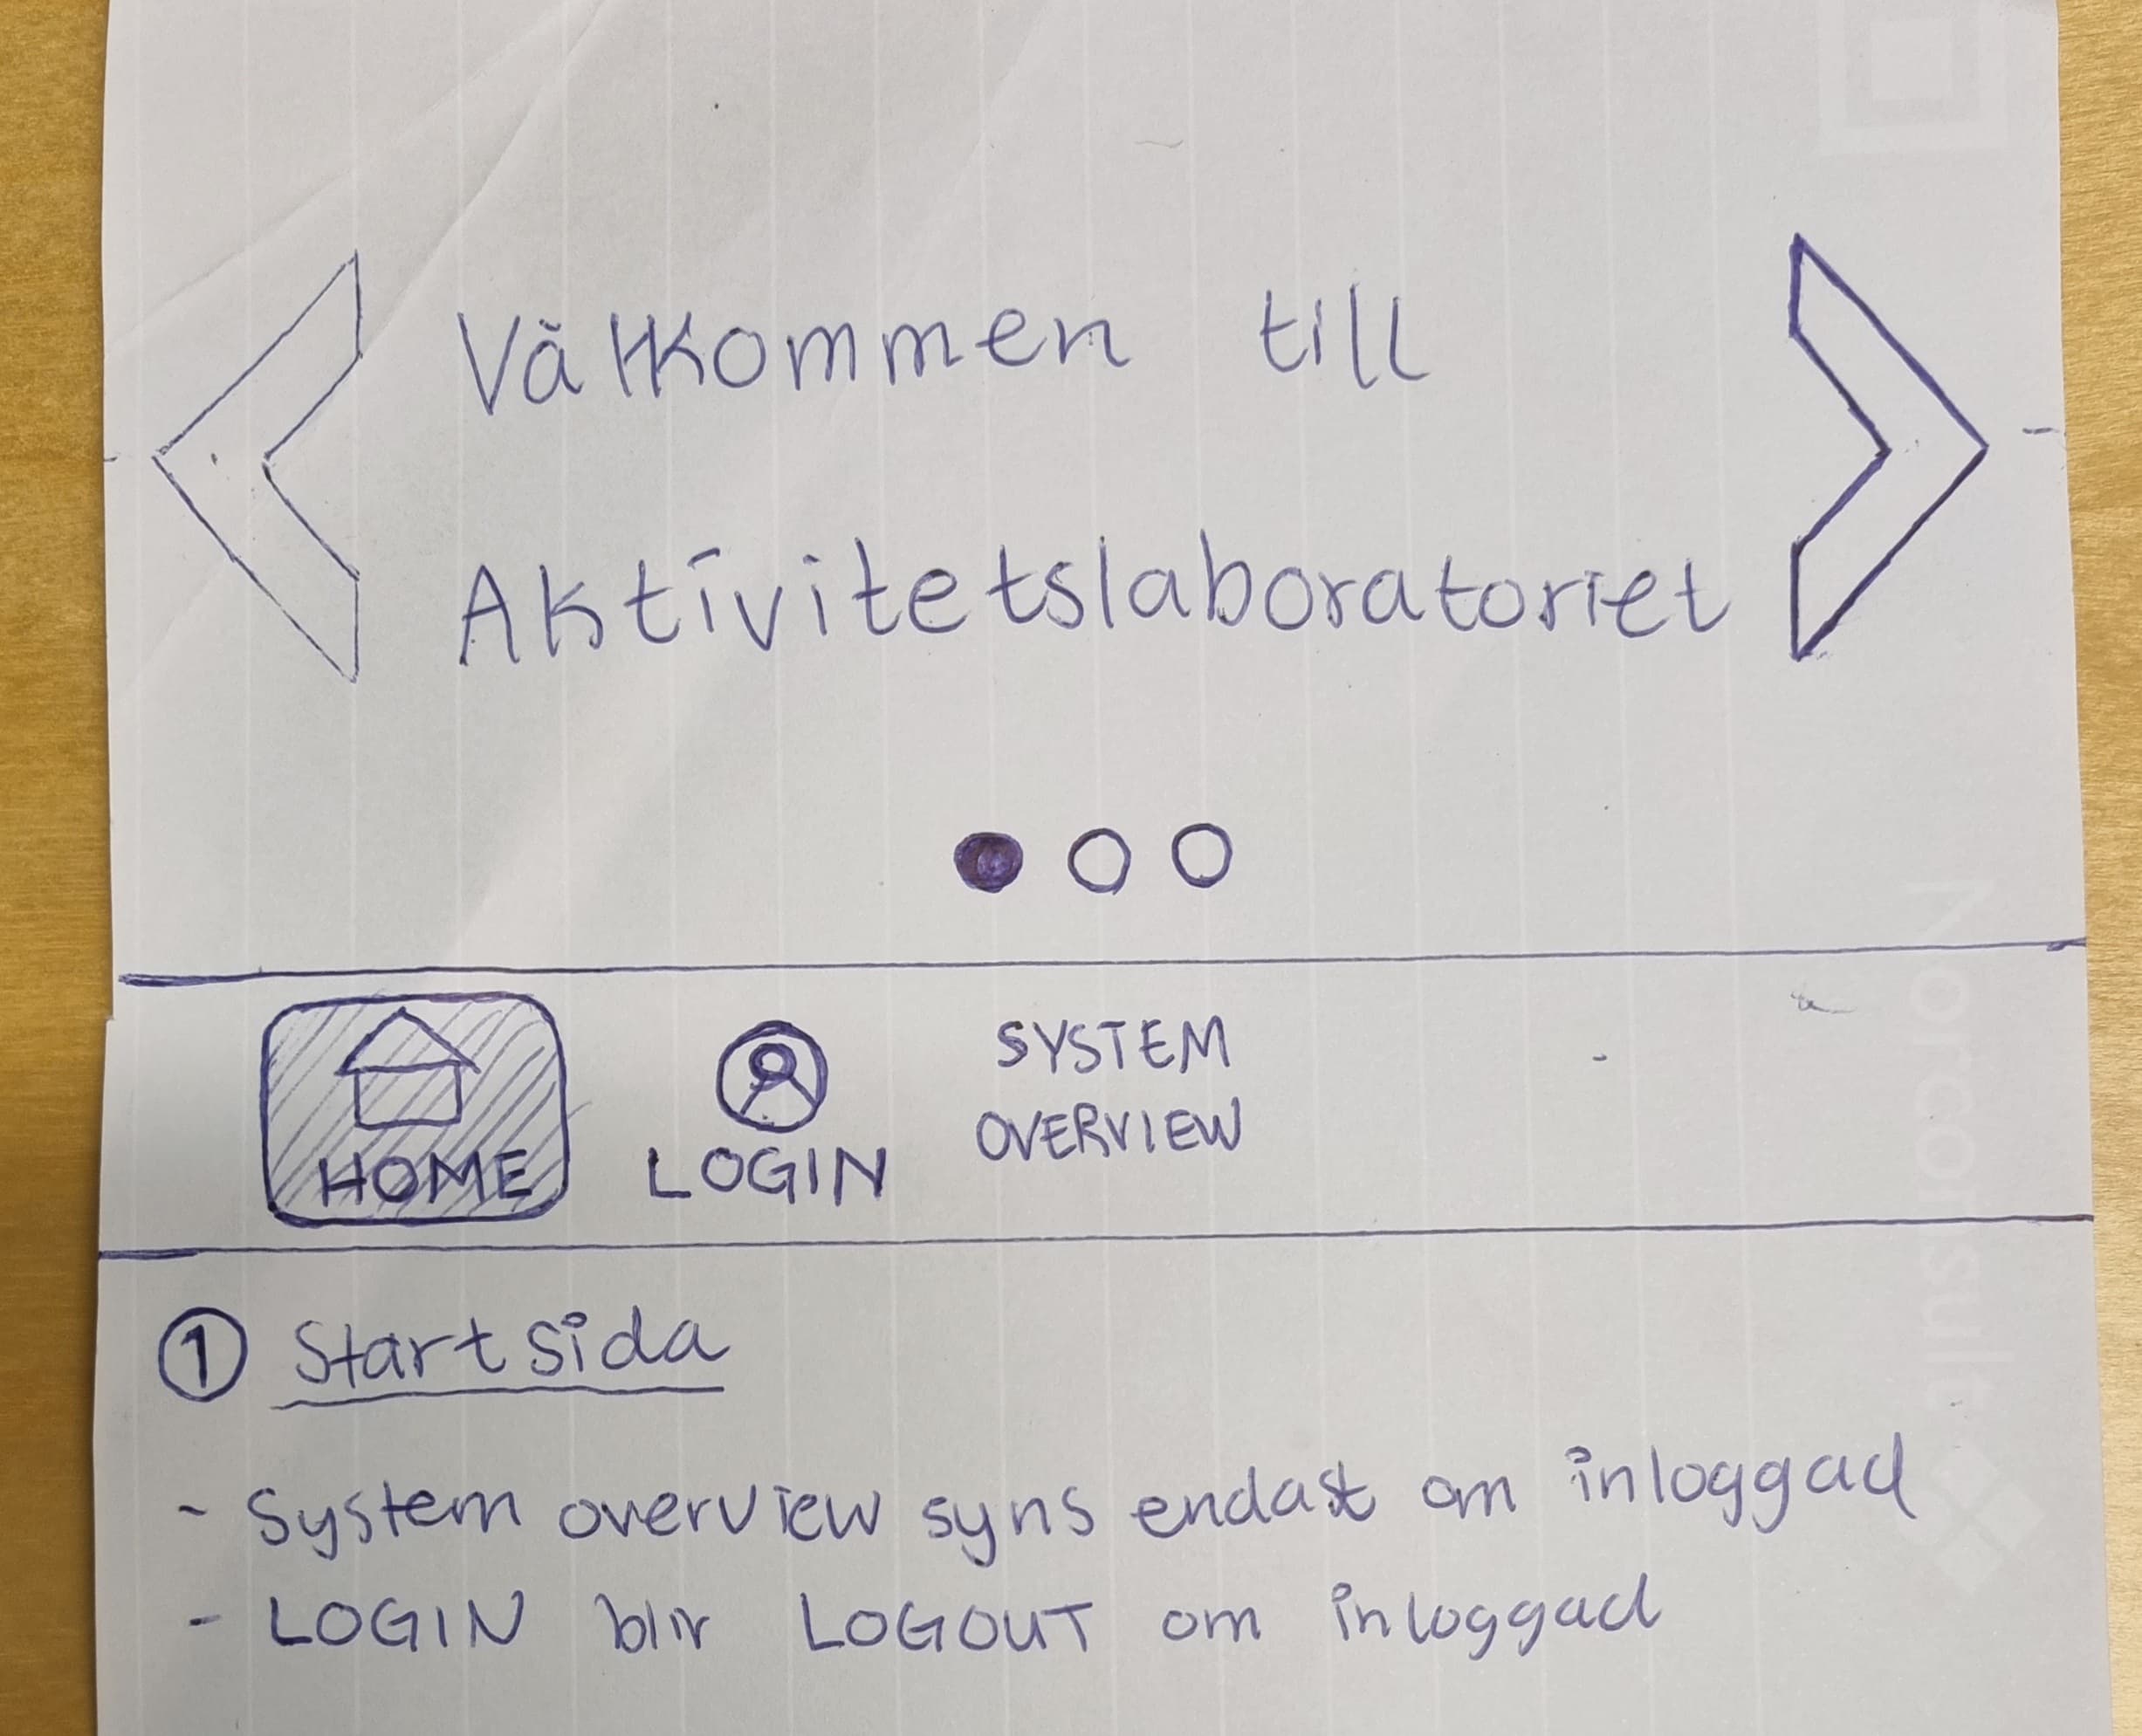 Välkommen till
Aktivitetslaboratoriet
HOME
LOGIN
SYSTEM
OVERVIEW
① Startsida
- System overview syns endast om inloggad
- LOGIN blir LOGOUT om inloggad
Norconsult